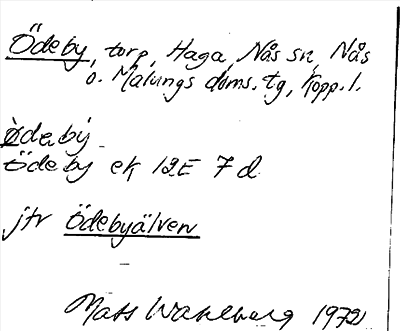 Ödeby, torp, Haga, Nås sn, Nås
o. Malungs doms. tg, Kopp. l.
ödebý
Ödeby ek 12E 7 d
jfr Ödebyälven
Mats Wahlberg 1972